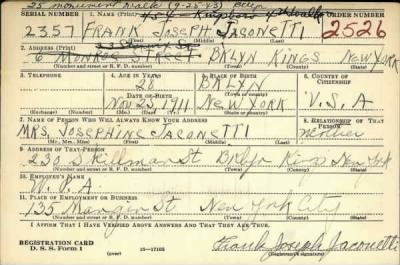 25 monument walk (9-25-43)
SERIAL NUMBER 1. NAME (Print) ORDER NUMBER
2357 FRANK JOSEPH JACONETTI 2526
(First) (Middle) (Last)
2. ADDRESS (Print)
6 MONROE STREET BKLYN KINGS NEW YORK
(Number and street or R. F. D. number) (Town) (County) (State)
3. TELEPHONE 4. AGE IN YEARS 5. PLACE OF BIRTH 6. COUNTRY OF CITIZENSHIP
28 BKLYN
DATE OF BIRTH
Nov 23, 1911 NEW YORK U.S.A
(Exchange) (Number) (Mo.) (Day) (Yr.) (State or country)
7. NAME OF PERSON WHO WILL ALWAYS KNOW YOUR ADDRESS 8. RELATIONSHIP OF THAT PERSON
MRS. JOSEPHINE JACONETTI mother
(Mr., Mrs., Miss) (First) (Middle) (Last)
9. ADDRESS OF THAT PERSON
230 Skillman St Bklyn Kings New York
(Number and street or R. F. D. number) (Town) (County) (State)
10. EMPLOYER'S NAME
W.P.A.
11. PLACE OF EMPLOYMENT OR BUSINESS
135 Mangin St New York City
(Number and street or R. F. D. number) (Town) (County) (State)
I AFFIRM THAT I HAVE VERIFIED ABOVE ANSWERS AND THAT THEY ARE TRUE.
REGISTRATION CARD
D. S. S. FORM 1 (over) 16-17105 Frank Joseph Jaconetti